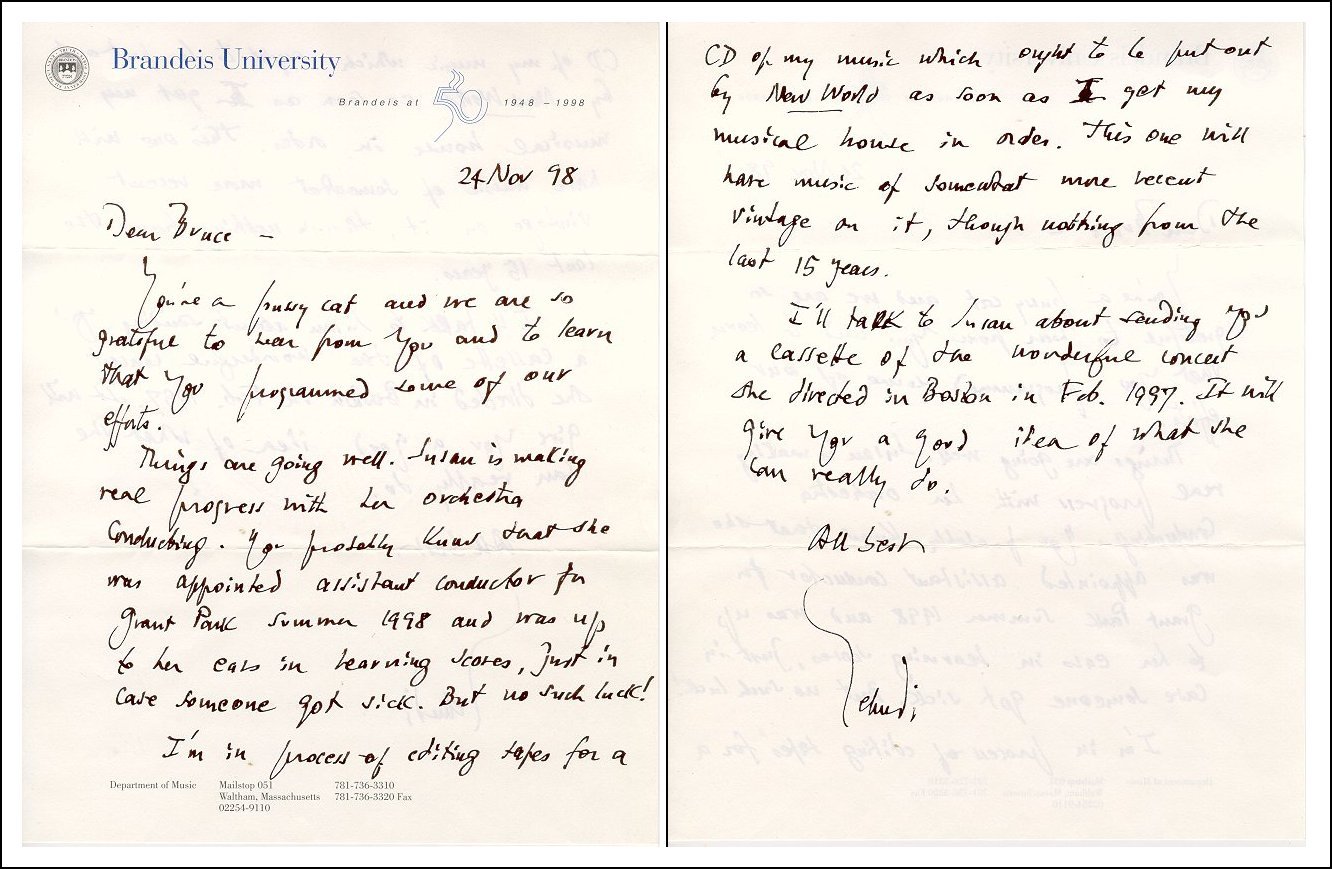 Brandeis University
Brandeis at 50 1948 – 1998
24 Nov 98
Dear Bruce –
You're a pussy cat and we are so
grateful to hear from you and to learn
that you programmed some of our
efforts.
Things are going well. Susan is making
real progress with her orchestra
conducting. You probably know that she
was appointed assistant conductor for
Grant Park summer 1998 and was up
to her ears in learning scores, just in
case someone got sick. But no such luck!
I'm in process of editing tapes for a
Department of Music
Mailstop 051
Waltham, Massachusetts
02254-9110
781-736-3310
781-736-3320 Fax
CD of my music which ought to be put out
by New World as soon as I get my
musical house in order. This one will
have music of somewhat more recent
vintage on it, though nothing from the
last 15 years.
I'll talk to Susan about sending you
a cassette of the wonderful concert
she directed in Boston in Feb. 1997. It will
give you a good idea of what she
can really do.
All best
Yehudi